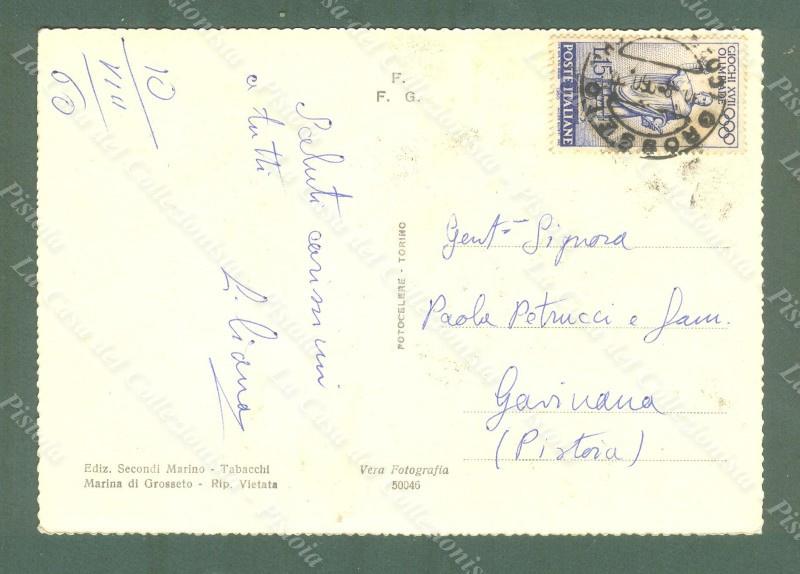 10
VIII
60
Saluti carissimi
a tutti
Liliana
F.
F. G.
FOTOCELERE - TORINO
GIOCHI XVII
OLIMPIADE
L.15
POSTE ITALIANE
GROSSETO
Gent.ma Signora
Paola Petrucci e fam.
Gavinana
(Pistoia)
Ediz. Secondi Marino - Tabacchi
Marina di Grosseto - Rip. Vietata
Vera Fotografia
50046
La Casa del Collezionista
Pistoia